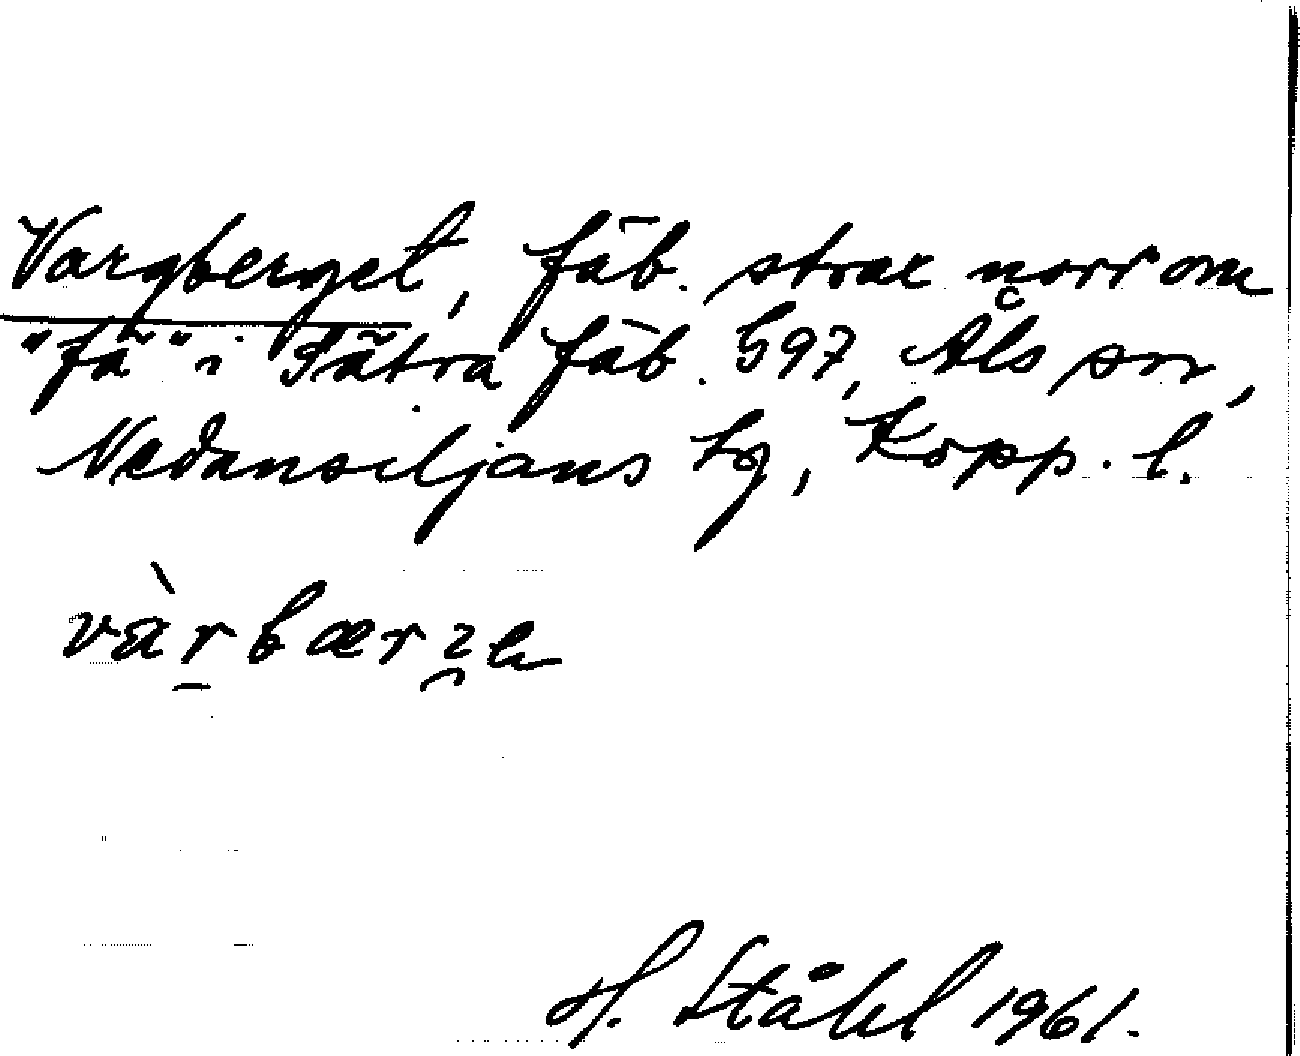 Vargberget, fäb. strax norr om
"fä" i Sätra fäb. G97, Åls sn,
Nedansiljans tg, Kopp. l.
vàrbærze
H. Ståhl 1961.